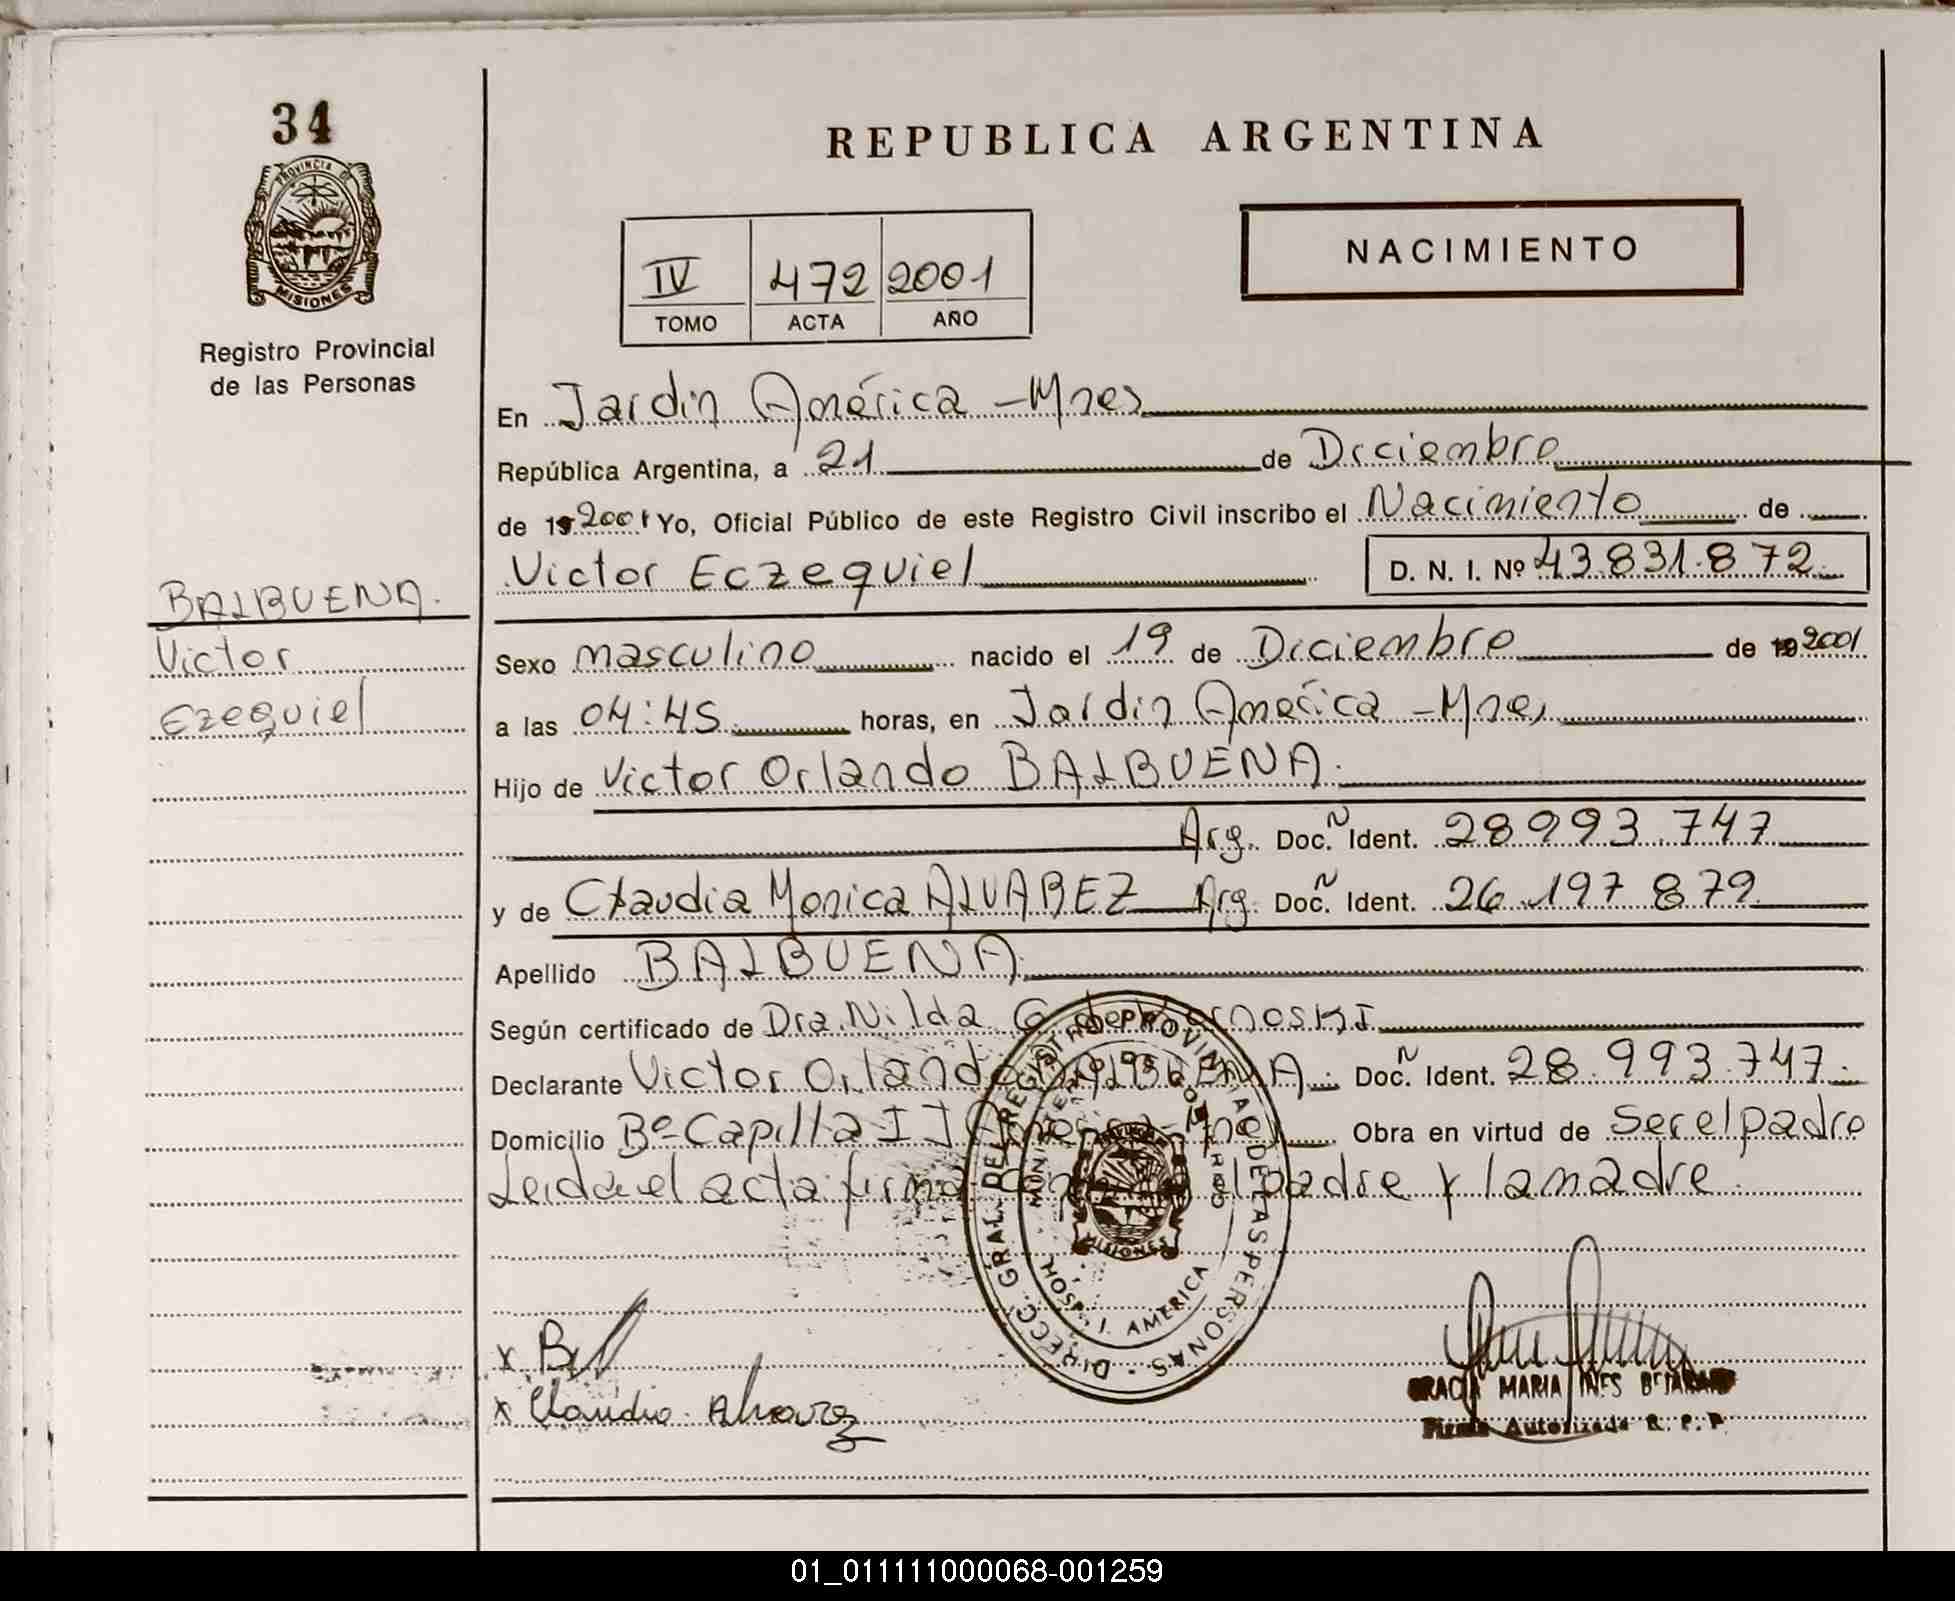 34
PROVINCIA DE
MISIONES
Registro Provincial
de las Personas
BALBUENA.
Victor
Ezequiel
REPUBLICA ARGENTINA
NACIMIENTO
IV 472 2001
TOMO ACTA AÑO
En Jardin América - Mnes
República Argentina, a 21 de Diciembre
de 19 2001 Yo, Oficial Público de este Registro Civil inscribo el Nacimiento de
Victor Eczequiel D. N. I. Nº 43.831.872
Sexo masculino nacido el 19 de Diciembre de 19 2001
a las 04:45 horas, en Jardin América - Mnes
Hijo de Victor Orlando BALBUENA.
Arg. Doc. N Ident. 28.993.747
y de Claudia Monica ALVAREZ Arg. Doc. N Ident. 26.197.879
Apellido BALBUENA
Según certificado de Dra. Nilda
Declarante Victor Orlando BALBUENA. Doc. N Ident. 28.993.747.
Domicilio Bº Capilla Obra en virtud de Ser el padre
Leida el acta firman el padre y la madre.
DIRECC. GRAL. DEL REGISTRO PROVINCIAL DE LAS PERSONAS
HOSP. J. AMERICA
MISIONES
x
x Claudia Alvarez
GRACIA MARIA INES BEJARANO
Firma Autorizada R. P. P.
01_011111000068-001259